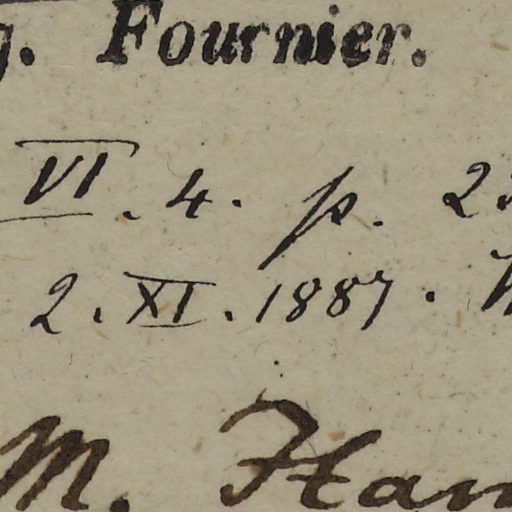 g. Fournier.
VI. 4. p. 2
2. XI. 1887.
M. Han